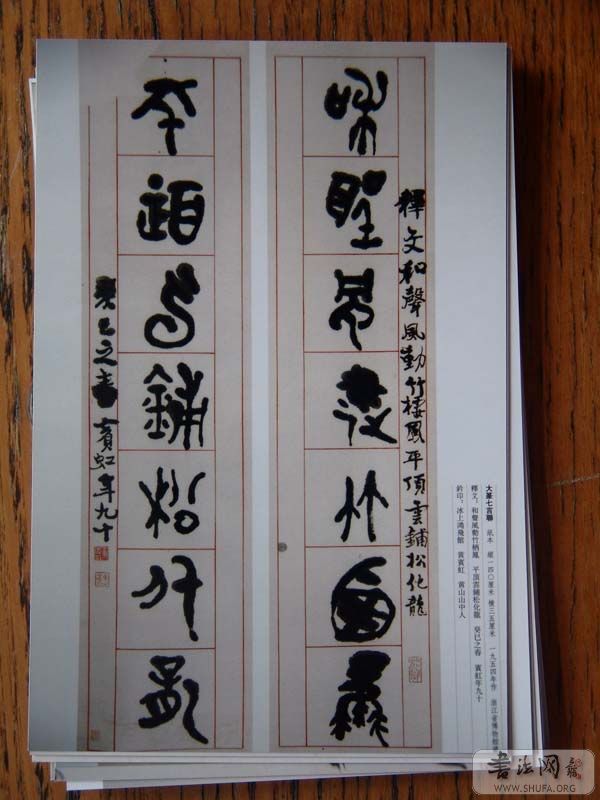 大篆七言聯 紙本 縱一四〇厘米 橫三五厘米 一九五四年作 浙江省博物館
釋文：和聲風動竹栖鳳 平頂雲鋪松化龍 癸巳之春 賓虹年九十
鈐印：冰上鴻飛館 黃賓虹 黃山山中人
釋文和聲風動竹棲鳳平頂雲鋪松化龍
和聲風動竹棲鳳
平頂雲鋪松化龍
癸巳之春 賓虹年九十
書法网
WWW.SHUFA.ORG